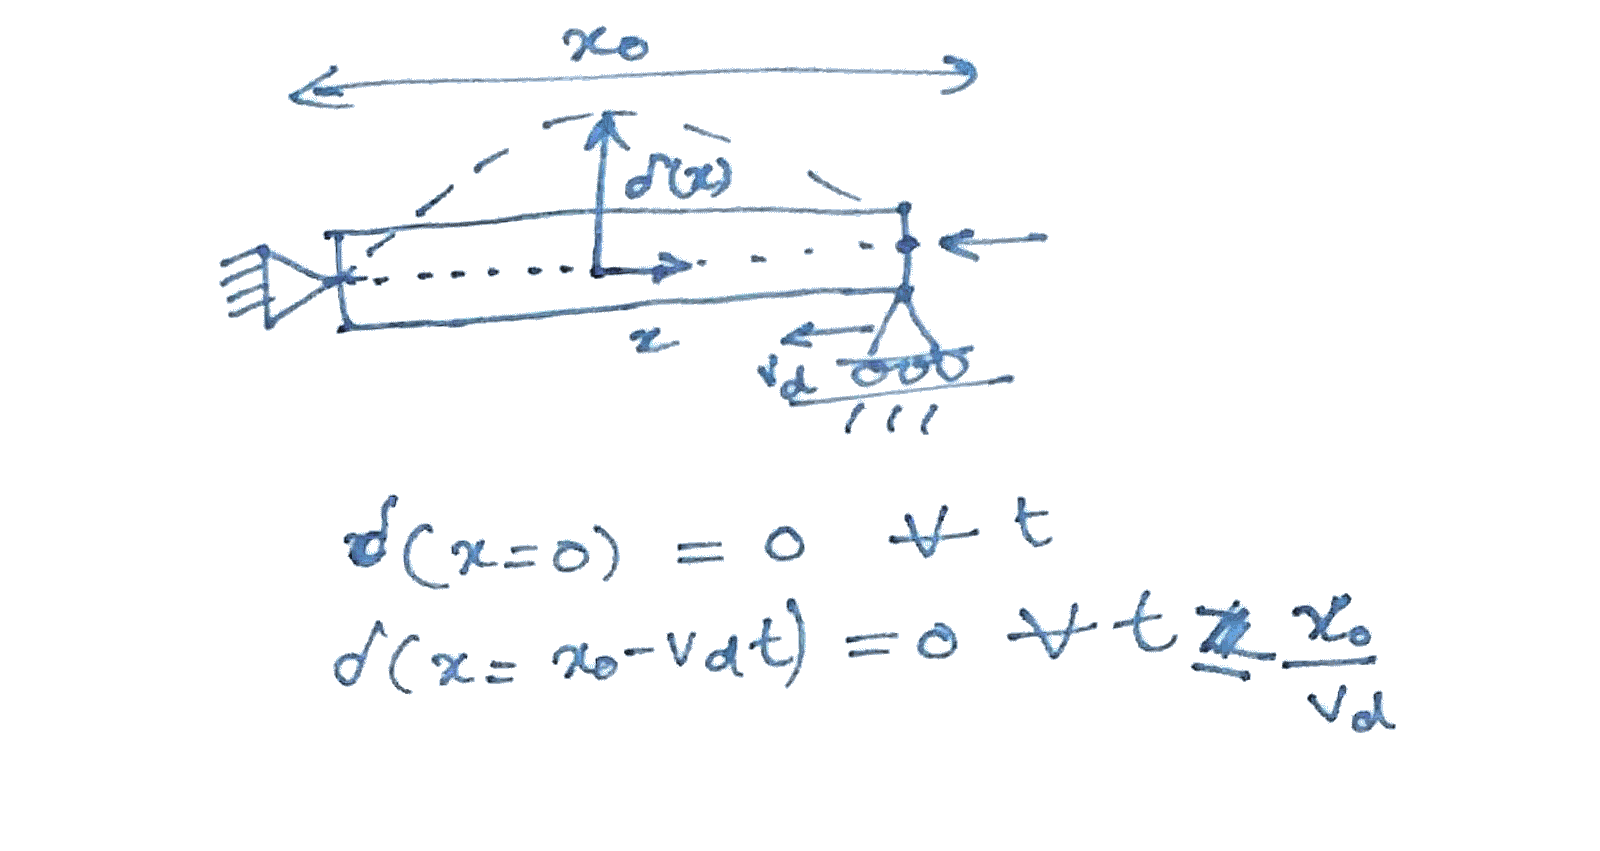 x₀
δ(x)
x
v_d
δ(x=0) = 0 ∀ t
δ(x= x₀-v_d t) = 0 ∀ t x₀/v_d